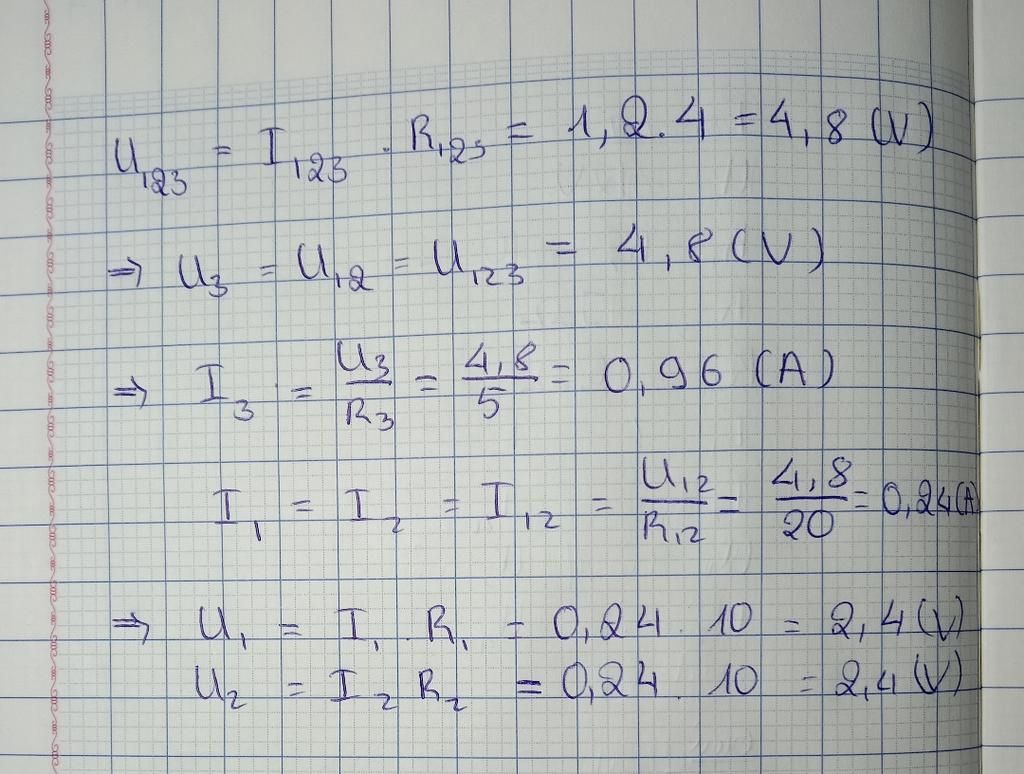 U₁₂₃ = I₁₂₃ . R₁₂₃ = 1,2.4 = 4,8 (V)
⇒ U₃ = U₁₂ = U₁₂₃ = 4,8 (V)
⇒ I₃ = U₃/R₃ = 4,8/5 = 0,96 (A)
I₁ = I₂ = I₁₂ = U₁₂/R₁₂ = 4,8/20 = 0,24(A)
⇒ U₁ = I₁ . R₁ = 0,24 . 10 = 2,4 (V)
U₂ = I₂ R₂ = 0,24 . 10 = 2,4 (V)